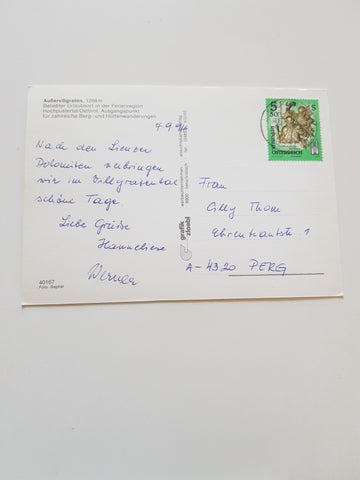 Außervillgraten, 1286 m
Beliebter Urlaubsort in der Ferienregion
Hochpustertal/Osttirol. Ausgangspunkt
für zahlreiche Berg- und Hüttenwanderungen
7.9.
Nach den Lienzer
Dolomiten verbringen
wir im Villgratental
schöne Tage.
Liebe Grüße
Hannelïese
Werner
40167
Foto: Baptist
grafik
zloebl
5
50
S
ÖSTERREICH
Frau
Cilly Thom
Ehrentrautstr. 1
A-4320 PERG